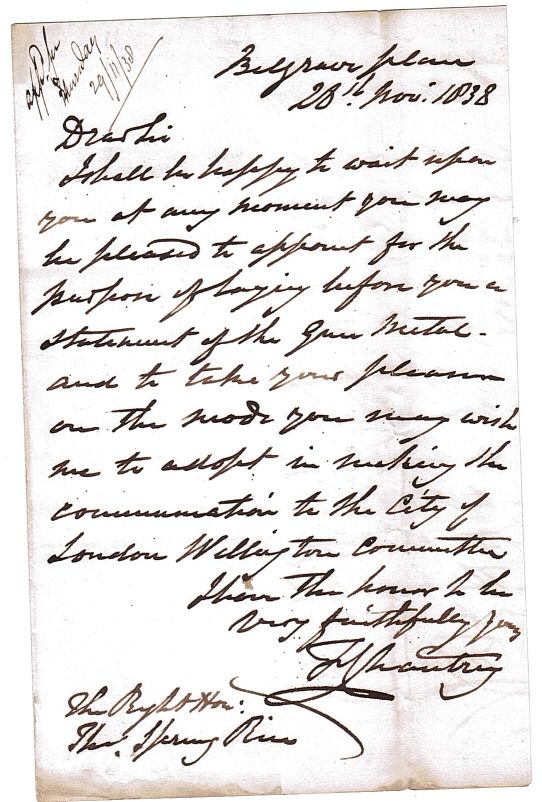 appd for
Thursday
29/11/38
Belgrave place
28th Novr. 1838
Dear Sir
I shall be happy to wait upon
you at any moment you may
be pleased to appoint for the
purpose of laying before you a
statement of the Gun Metal -
and to take your pleasure
on the mode you may wish
me to adopt in making the
communication to the City of
London Wellington Committee
I have the honor to be
very faithfully yours
F Chantrey
The Right Honl.
Thos. Spring Rice